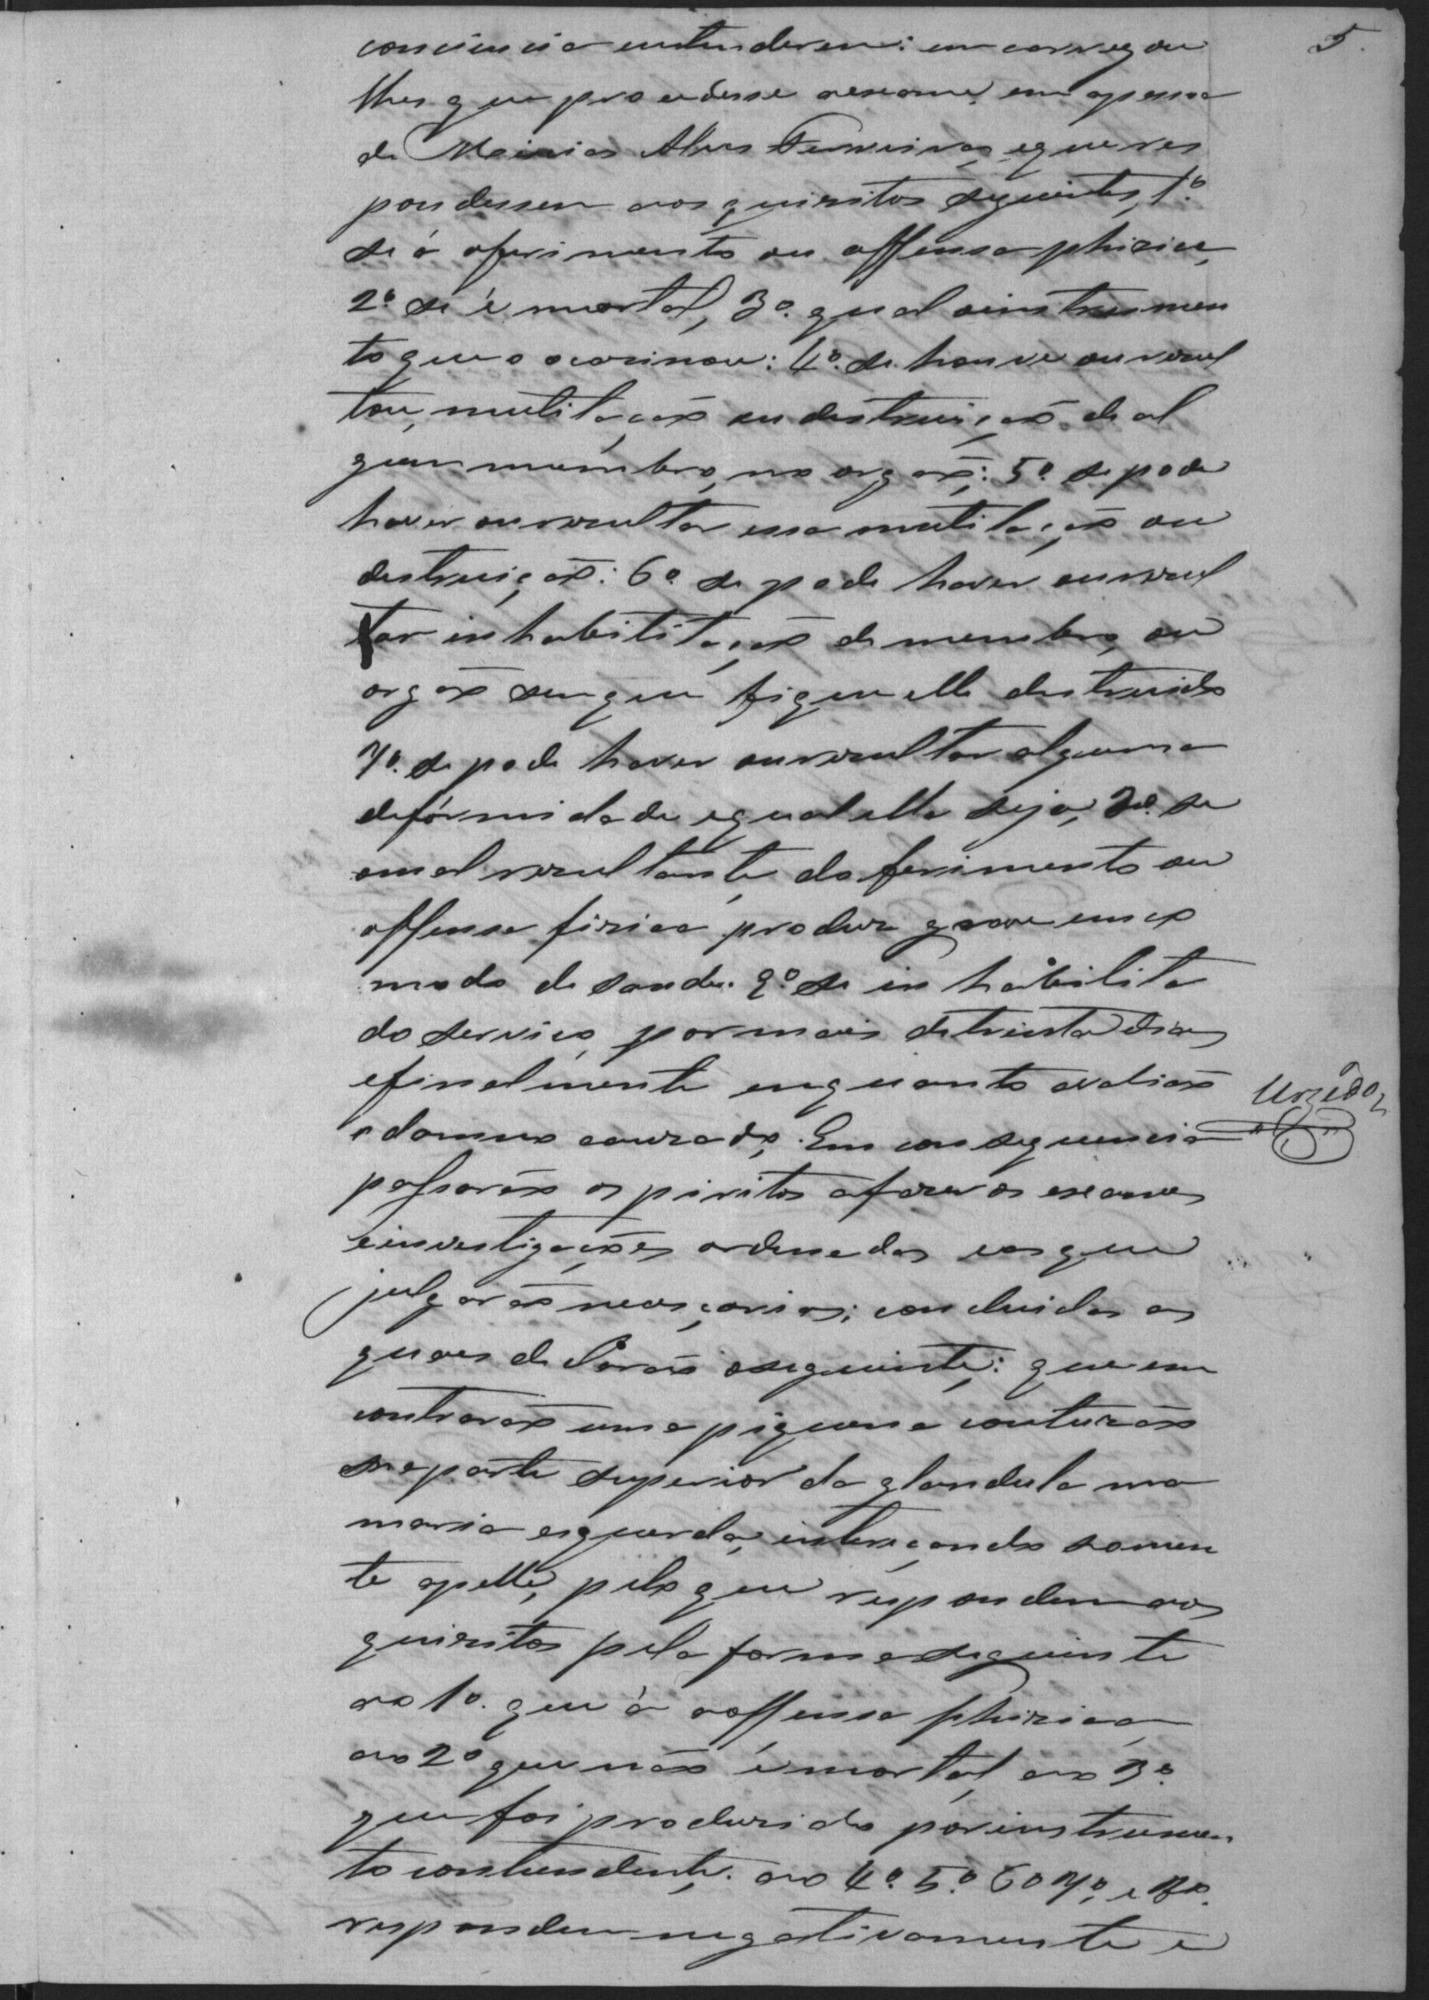 5.
conciencia entenderem: encarregou
lhes que procedesse aexame, em apessoa
de Alves Ferreira, eque res
pondessem aos quizitos seguintes, 1º
se á oferimento ou offensa phizica,
2º se é mortal, 3º qual oinstrumen
to que o ocazinou: 4º se houve ou rezul
tou, mutilação ou destruição de al
gum membro, ou orgão; 5º se pode
haver ou rezultar essa mutilação ou
destruição: 6º se pode haver ou rezul
tar inhabilitação de membro, ou
orgão sem que fique elle destruido
7º se pode haver ou rezultar alguma
defórmidade equal ella seja, 8º se
omal rezultante do ferimento ou
offensa fizica produz grave encó
modo de saude. 9º se inhabilita
do serviço por mais de trinta dias
efinalmente enquanto avalião
o damno cauzado. Em consequencia
passarão os piritos afazer os exames
einvestigações ordenadas eas que
julgarão necesçarias; concluidas as
quaes declarão oseguinte: que en
contrarão uma piquena contuzão
na parte superior da glandula ma
maria esquerda, intereçando somen
te apelle, pelo que respondem aos
quizitos pela forma seguinte
ao 1º que á offensa phizica
ao 2º que não é mortal, ao 3º
que foi produzido por instrumen
to contundente. ao 4º 5º 6º 7º e 8º
respondem negativamente e